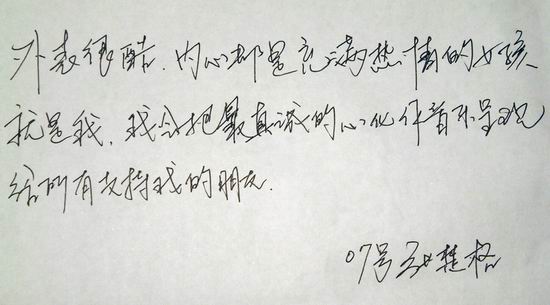 外表很酷.内心都是充满热情的女孩
就是我.我会把最真诚的心化作音乐呈现
给所有支持我的朋友.
07号 楚格